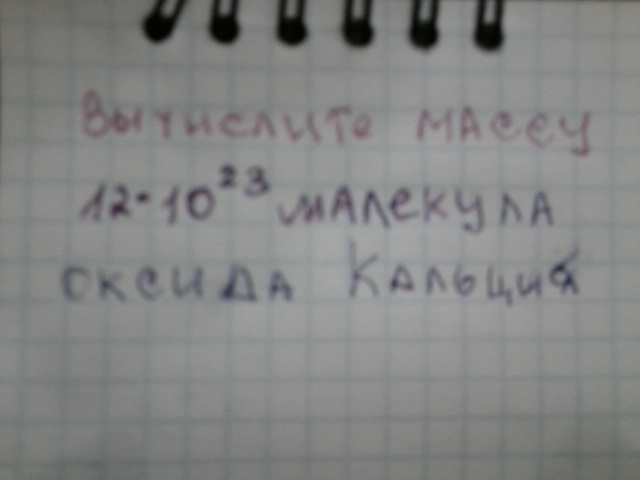 Вычислите массу
12·10²³ малекула
оксида кальция